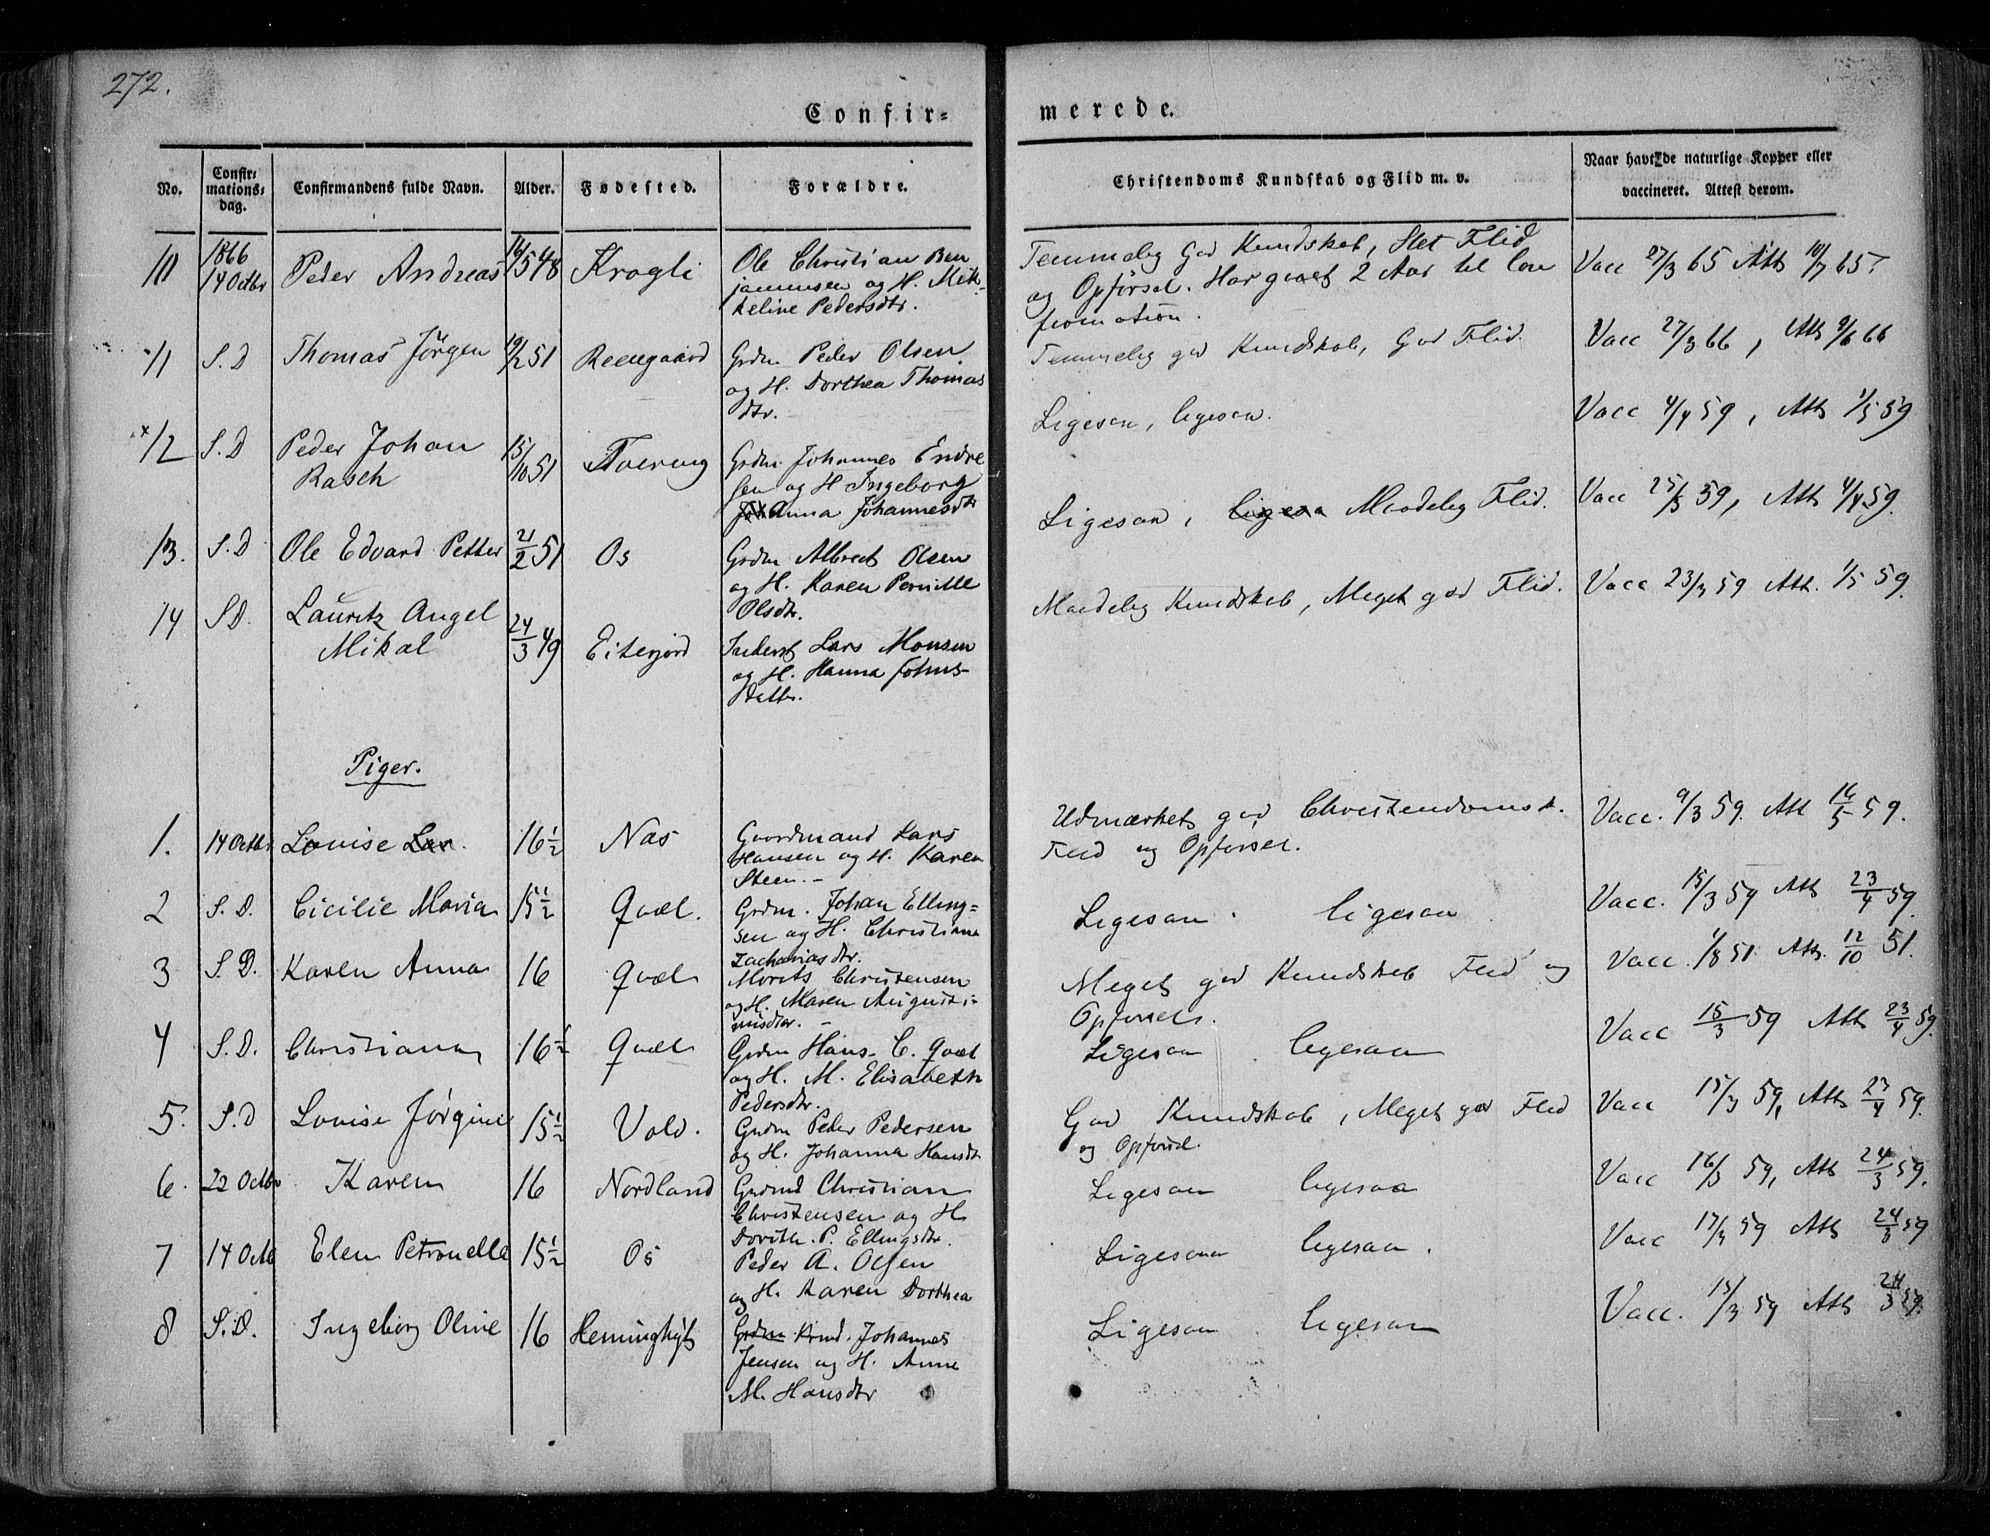 272.
Confir=
merede.
No.
Confir=
mations=
dag.
Confirmandens fulde Navn.
Alder.
Fødested.
Forældre.
Christendoms Kundskab og Flid m. v.
Naar havt de naturlige Kopper eller
vaccineret. Attest derom.
10 1866 14 Octbr Peder Andreas 14/5 48 Krogli Ole Christian Ben
jaminsen og H. Mik-
keline Pedersdtr.
Temmelig God Kundskab, Slet Flid
og Opførsel. Har gaaet 2 Aar til Con
firmation.
Vacc 27/3 65 Att 10/7 65.
11 S. D Thomas Jörgen 19/2 51 Grdm Peder Olsen
og H. Dorthea Thomas
dtr.
Temmelig god Kundskab, God Flid.
Vacc 27/3 66, Att 9/6 66
12 S. D Peder Johan
Rasch 15/10 51 Grdm Johannes Endre
sen og H Ingeborg
Anna Johannesdtr
Ligesaa, ligesaa.
Vacc 4/4 59, Att 1/5 59
13. S. D Ole Edvard Petter 21/2 51 Os Grdm Albrect Olsen
og H. Karen Pernille
Olsdtr.
Ligesaa, ligesaa Maadelig Flid.
Vacc 25/3 59, Att 4/4 59.
14 S D. Lauritz Angel
Mikal 24/3 49 Eiterjord Inderst Lars Monsen
og H. Hanna Johns-
Datter.
Maadelig Kundskab, Meget god Flid.
Vacc 23/3 59 Att. 1/5 59.
Piger.
1. 14 Octbr Lovise Lar. 16 1/2 Nas Gaardmand Lars
Hansen og H. Karen
Steen.-
Udmærket god Christendomsk.
Flid og Opførsel.
Vacc. 9/3 59. Att 16/5 59.
2 S. D. Cicilie Maria 15 1/2 Qvæl. Grdm. Johan Elling=
sen og H. Christiana
Zachariasdtr.
Ligesaa. ligesaa
Vacc. 15/3 59 Att 23/4 59.
3 S. D. Karen Anna 16 Qvæl Morits Christensen
og H. Maren Augusti-
nusdtr. -
Meget god Kundskab Flid og
Opførsel.
Vacc. 1/8 51 Att. 12/10 51.
4 S. D. Christiana 16 1/2 Qvæl Grdm Hans C. Qvæl
og H. M. Elisabeth
Pedersdtr.
Ligesaa. ligesaa
Vacc 15/3 59 Att 23/4 59.
5. S. D Lovise Jørgine 15 1/2 Vold. Grdm Peder Pedersen
og H. Johanna Hansdtr
God Kundskab, Meget god Flid
og Opførsel.
Vacc 15/3 59, Att 23/4 59.
6. 22 Octbr Karen 16 Nordland Grdmd Christian
Christensen og H
Dorith. P. Ellingsdtr.
Ligesaa ligesaa
Vacc 16/3 59, Att 24/3 59.
7 14 Octb Elen Petronelle 15 1/2 Os Peder A. Olsen
og H. Karen Dorthea
Ligesaa ligesaa.
Vacc 17/3 59 Att 24/3 59
8 S. D. Ingeborg Olive 16 Heminghyt Grdm Johannes
Jensen og H. Anne
M. Hansdtr
Ligesaa. ligesaa
Vacc. 15/3 59 Att 24/3 59.